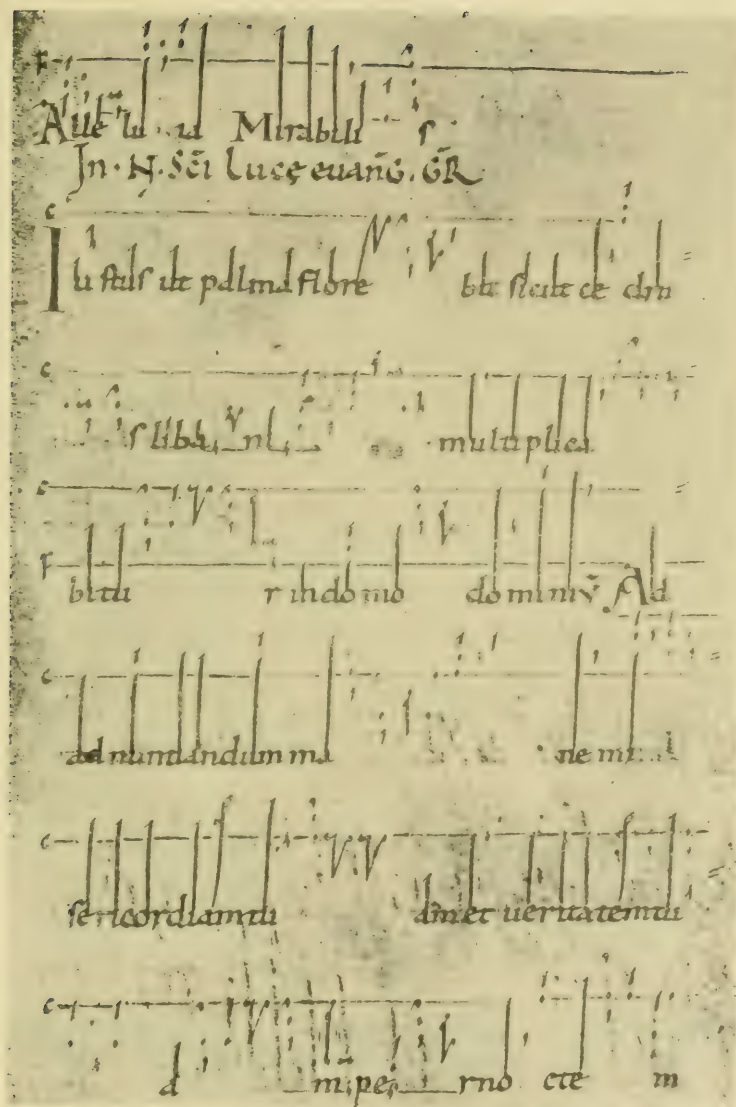 Alle lu ia Mirabili s
In · N · Sc̄i Lucę euanḠ. ḠR
Iu stus ut palma flore bit sicut ce dru
s liba ni multiplica
bitu r in domo domini V̄ Ad
ad nuntiandum ma ne mi
sericordiam tu am et ueritatem tu
a m per no cte m